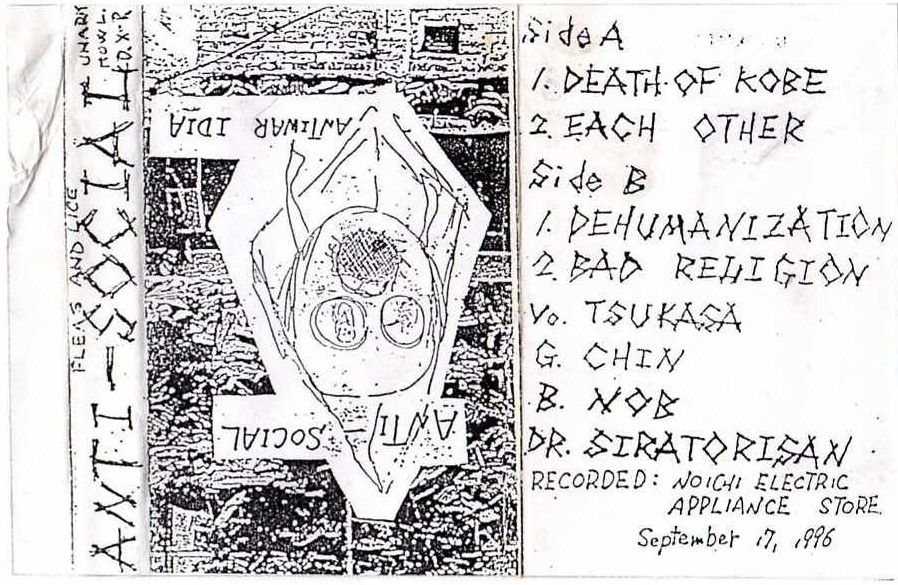 FLEAS AND LICE
ANTI-SOCIAL
ANTIWAR IDIA
ANTI-SOCIAL
Side A
1. DEATH OF KOBE
2. EACH OTHER
Side B
1. DEHUMANIZATION
2. BAD RELIGION
Vo. TSUKASA
G. CHIN
B. NOB
DR. SIRATORISAN
RECORDED: NOICHI ELECTRIC
APPLIANCE STORE.
September 17, 1996